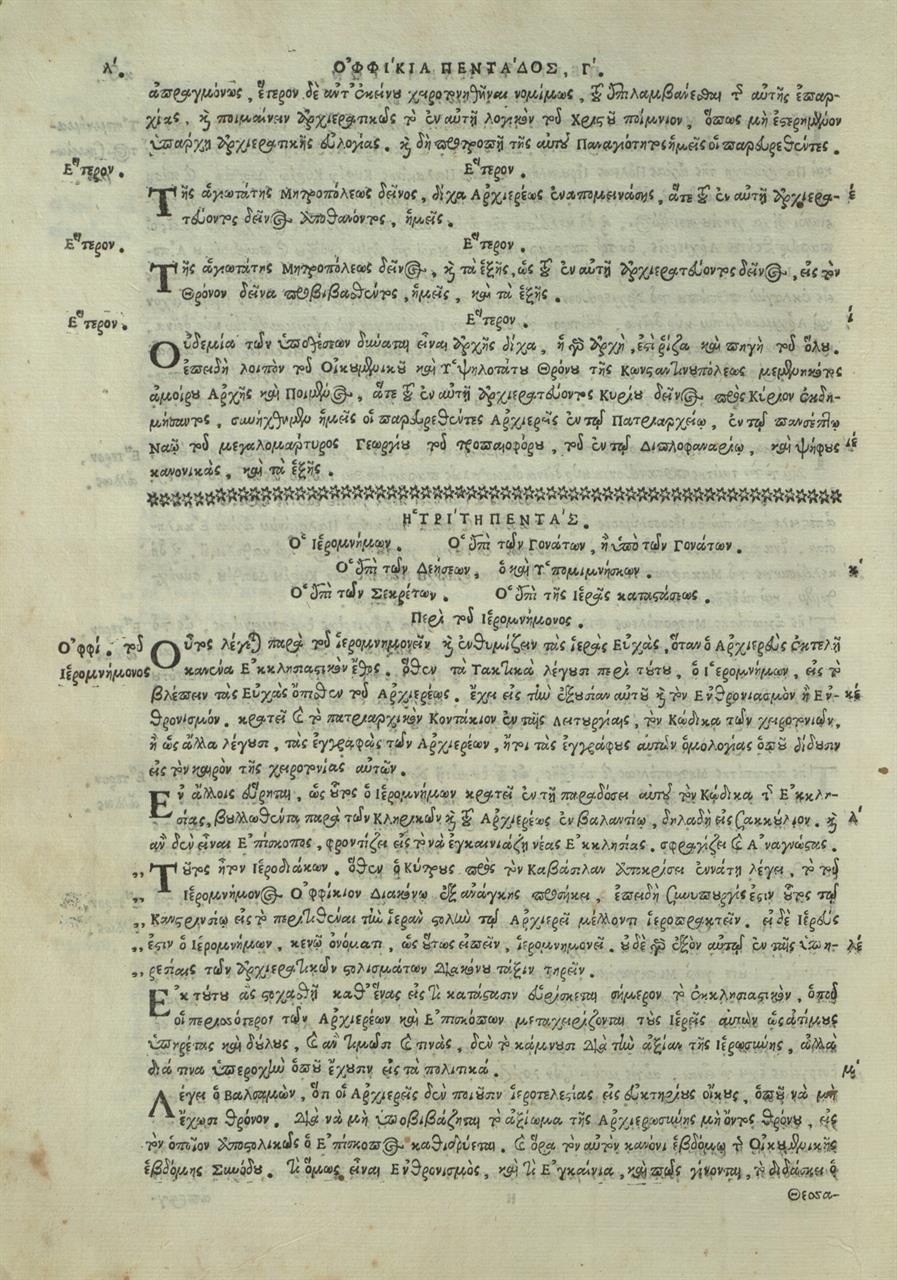 λʹ. ὈΦΦΊΚΙΑ ΠΕΝΤΆΔΟΣ, Γʹ.
ἀπραγμόνως, ἕτερον δὲ ἀντ' ἐκείνου χειροτονηθῆναι νομίμως, τοῦ ἐπιλαμβάνεσθαι τῆς αὐτῆς ἐπαρ-
χίας, καὶ ποιμαίνειν ἀρχιερατικῶς τὸ ἐν αὐτῇ λογικὸν τοῦ Χριστοῦ ποίμνιον, ὅπως μὴ ἐστερημένον
ὑπάρχῃ ἀρχιερατικῆς εὐλογίας. καὶ δὴ προτροπῇ τῆς αὐτοῦ Παναγιότητος ἡμεῖς οἱ παρευρεθέντες.
Ἕτερον. Ἕτερον.
Τῆς ἁγιωτάτης Μητροπόλεως δεῖνος, δίχα Ἀρχιερέως ἐναπομεινάσης, ἅτε τοῦ ἐν αὐτῇ ἀρχιερα- έ
τεύοντος δεῖνος ἀποθανόντος, ἡμεῖς.
Ἕτερον. Ἕτερον.
Τῆς ἁγιωτάτης Μητροπόλεως δεῖνος, καὶ τὰ ἑξῆς, ὡς τοῦ ἐν αὐτῇ ἀρχιερατεύοντος δεῖνος, εἰς τὸν
Θρόνον δεῖνα προβιβαθέντος, ἡμεῖς, καὶ τὰ ἑξῆς.
Ἕτερον. Ἕτερον. ί
Οὐδεμία τῶν ὑποθέσεων δύναται εἶναι ἀρχῆς δίχα, ἡ γὰρ ἀρχὴ, ἐστὶ ῥίζα καὶ πηγὴ τοῦ ὅλου.
ἐπειδὴ λοιπὸν τοῦ Οἰκουμενικοῦ καὶ Ὑψηλοτάτου Θρόνου τῆς Κωνσταντινουπόλεως μεμενηκότος
ἀμοίρου Ἀρχῆς καὶ Ποιμένος, ἅτε τοῦ ἐν αὐτῇ ἀρχιερατεύοντος Κυρίου δεῖνος πρὸς Κύριον ἐκδη-
μήσαντος, συνήχθημεν ἡμεῖς οἱ παρευρεθέντες Ἀρχιερεῖς ἐν τῷ Πατριαρχείῳ, ἐν τῷ πανσέπτῳ
Ναῷ τοῦ μεγαλομάρτυρος Γεωργίου τοῦ τροπαιοφόρου, τοῦ ἐν τῷ Διπλοφαναρίῳ, καὶ ψήφους ιέ
κανονικὰς, καὶ τὰ ἑξῆς.
Ἡ ΤΡΊΤΗ ΠΕΝΤᾺΣ.
Ὁ Ἱερομνήμων. Ὁ ἐπὶ τῶν Γονάτων, ἢ ὑπὸ τῶν Γονάτων.
Ὁ ἐπὶ τῶν Δεήσεων, ὁ καὶ Ὑπομιμνήσκων. κ
Ὁ ἐπὶ τῶν Σεκρέτων. Ὁ ἐπὶ τῆς Ἱερᾶς καταστάσεως.
Περὶ τοῦ Ἱερομνήμονος.
Ὀφφί. τοῦ Οὗτος λέγεται παρὰ τοῦ ἱερομνημονεῖν καὶ ἐνθυμίζειν τὰς ἱερὰς Εὐχὰς, ὅταν ὁ Ἀρχιερεὺς ἐκτελῇ
Ἱερομνήμονος κανένα Ἐκκλησιαστικὸν ἔθος. ὅθεν τὰ Τακτικὰ λέγουσι περὶ τούτου, ὁ Ἱερομνήμων, εἰς τὸ
βλέπειν τὰς Εὐχὰς ὄπιθεν τοῦ Ἀρχιερέως. ἔχει εἰς τὴν ἐξουσίαν αὐτοῦ καὶ τὸν Ἐνθρονιασμὸν ἢ Ἐν- κέ
θρονισμόν. κρατεῖ καὶ τὸ πατριαρχικὸν Κοντάκιον ἐν ταῖς Λειτουργίαις, τὸν Κώδικα τῶν χειροτονιῶν,
ἢ ὡς ἄλλα λέγουσι, τὰς ἐγγραφὰς τῶν Ἀρχιερέων, ἤτοι τὰς ἐγγράφους αὐτῶν ὁμολογίας ὁποῦ δίδουσιν
εἰς τὸν καιρὸν τῆς χειροτονίας αὐτῶν.
Ἐν ἄλλοις εὕρηται, ὡς οὗτος ὁ Ἱερομνήμων κρατεῖ ἐν τῇ παραδόσει αὐτοῦ τὸν Κώδικα τῆς Ἐκκλη-
σίας, βυλλωθέντα παρὰ τῶν Κληρικῶν καὶ τοῦ Ἀρχιερέως ἐν βαλαντίῳ, δηλαδὴ εἰς σακκούλιον. καὶ λ
ἂν δὲν εἶναι Ἐπίσκοπος, φροντίζει εἰς τὸ νὰ ἐγκαινιάζῃ νέας Ἐκκλησίας. σφραγίζει καὶ Ἀναγνώστας.
„ Τοῦτος ἦτον Ἱεροδιάκων. ὅθεν ὁ Κύτρους πρὸς τὸν Καβάσιλαν Ἀποκρίσει ἐννάτῃ λέγει, τὸ τοῦ
„ Ἱερομνήμονος Ὀφφίκιον Διακόνῳ ἐξ ἀνάγκης προσήκει, ἐπειδὴ συνυπουργός ἐστιν οὗτος τῷ
„ Κανστρινσίῳ εἰς τὸ περιτιθέναι τὴν ἱερὰν στολὴν τῷ Ἀρχιερεῖ μέλλοντι ἱεροπρακτεῖν. εἰ δὲ Ἱερεύς
„ ἐστιν ὁ Ἱερομνήμων, κενῷ ὀνόματι, ὡς οὕτως εἰπεῖν, ἱερομνημονεῖ. οὐδὲ γὰρ ἐξὸν αὐτῷ ἐν ταῖς ὑπη- λέ
„ ρεσίαις τῶν ἀρχιερατικῶν στολισμάτων Διακόνου τάξιν τηρεῖν.
Ἐκ τούτου ἂς στοχασθῇ καθ' ἕνας εἰς τί κατάστασιν εὑρίσκεται σήμερον τὸ ἐκκλησιαστικὸν, ὁποῦ
οἱ περισσότεροι τῶν Ἀρχιερέων καὶ Ἐπισκόπων μεταχειρίζονται τοὺς Ἱερεῖς αὐτῶν ὡς ἀτίμους
ὑπηρέτας καὶ δούλους, καὶ ἂν τιμῶσι καὶ τινὰς, δὲν τὸ κάμνουσι διὰ τὴν ἀξίαν τῆς Ἱερωσύνης, ἀλλὰ
διά τινα ὑπεροχὴν ὁποῦ ἔχουσιν εἰς τὰ πολιτικά. μ
Λέγει ὁ Βαλσαμὼν, ὅτι οἱ Ἀρχιερεῖς δὲν ποιοῦσιν ἱεροτελεσίας εἰς εὐκτηρίους οἴκους, ὁποῦ νὰ μὴ
ἔχωσι θρόνον. διὰ νὰ μὴ ὑποβιβάζηται τὸ ἀξίωμα τῆς Ἀρχιερωσύνης μὴ ὄντος θρόνου, εἰς
τὸν ὁποῖον ἀποστολικῶς ὁ Ἐπίσκοπος καθιδρύεται. καὶ ὅρα τὸν αὐτὸν κανόνι ἑβδόμῳ τῆς Οἰκουμενικῆς
ἑβδόμης Συνόδου. τί ὅμως εἶναι Ἐνθρονισμὸς, καὶ τί Ἐγκαίνια, καὶ πῶς γίνονται, τὸ διδάσκει ὁ
Θεσσα-